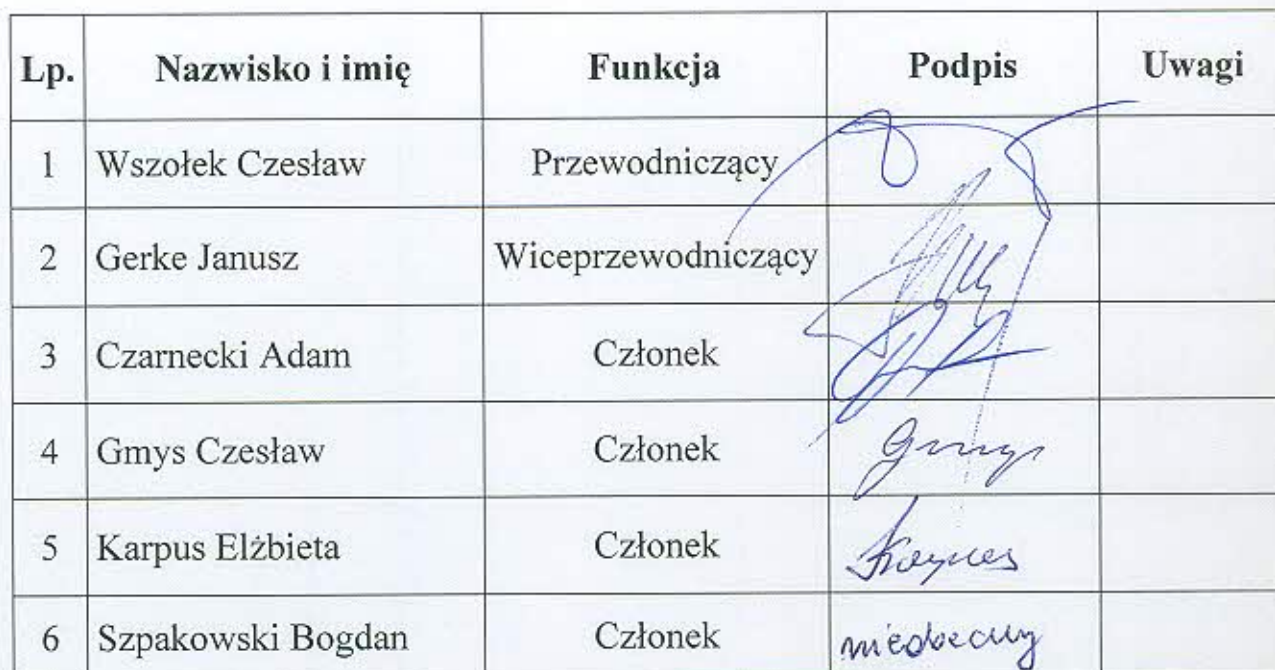 Lp. Nazwisko i imię Funkcja Podpis Uwagi
1 Wszołek Czesław Przewodniczący
2 Gerke Janusz Wiceprzewodniczący
3 Czarnecki Adam Członek
4 Gmys Czesław Członek Gmys
5 Karpus Elżbieta Członek Karpus
6 Szpakowski Bogdan Członek nieobecny